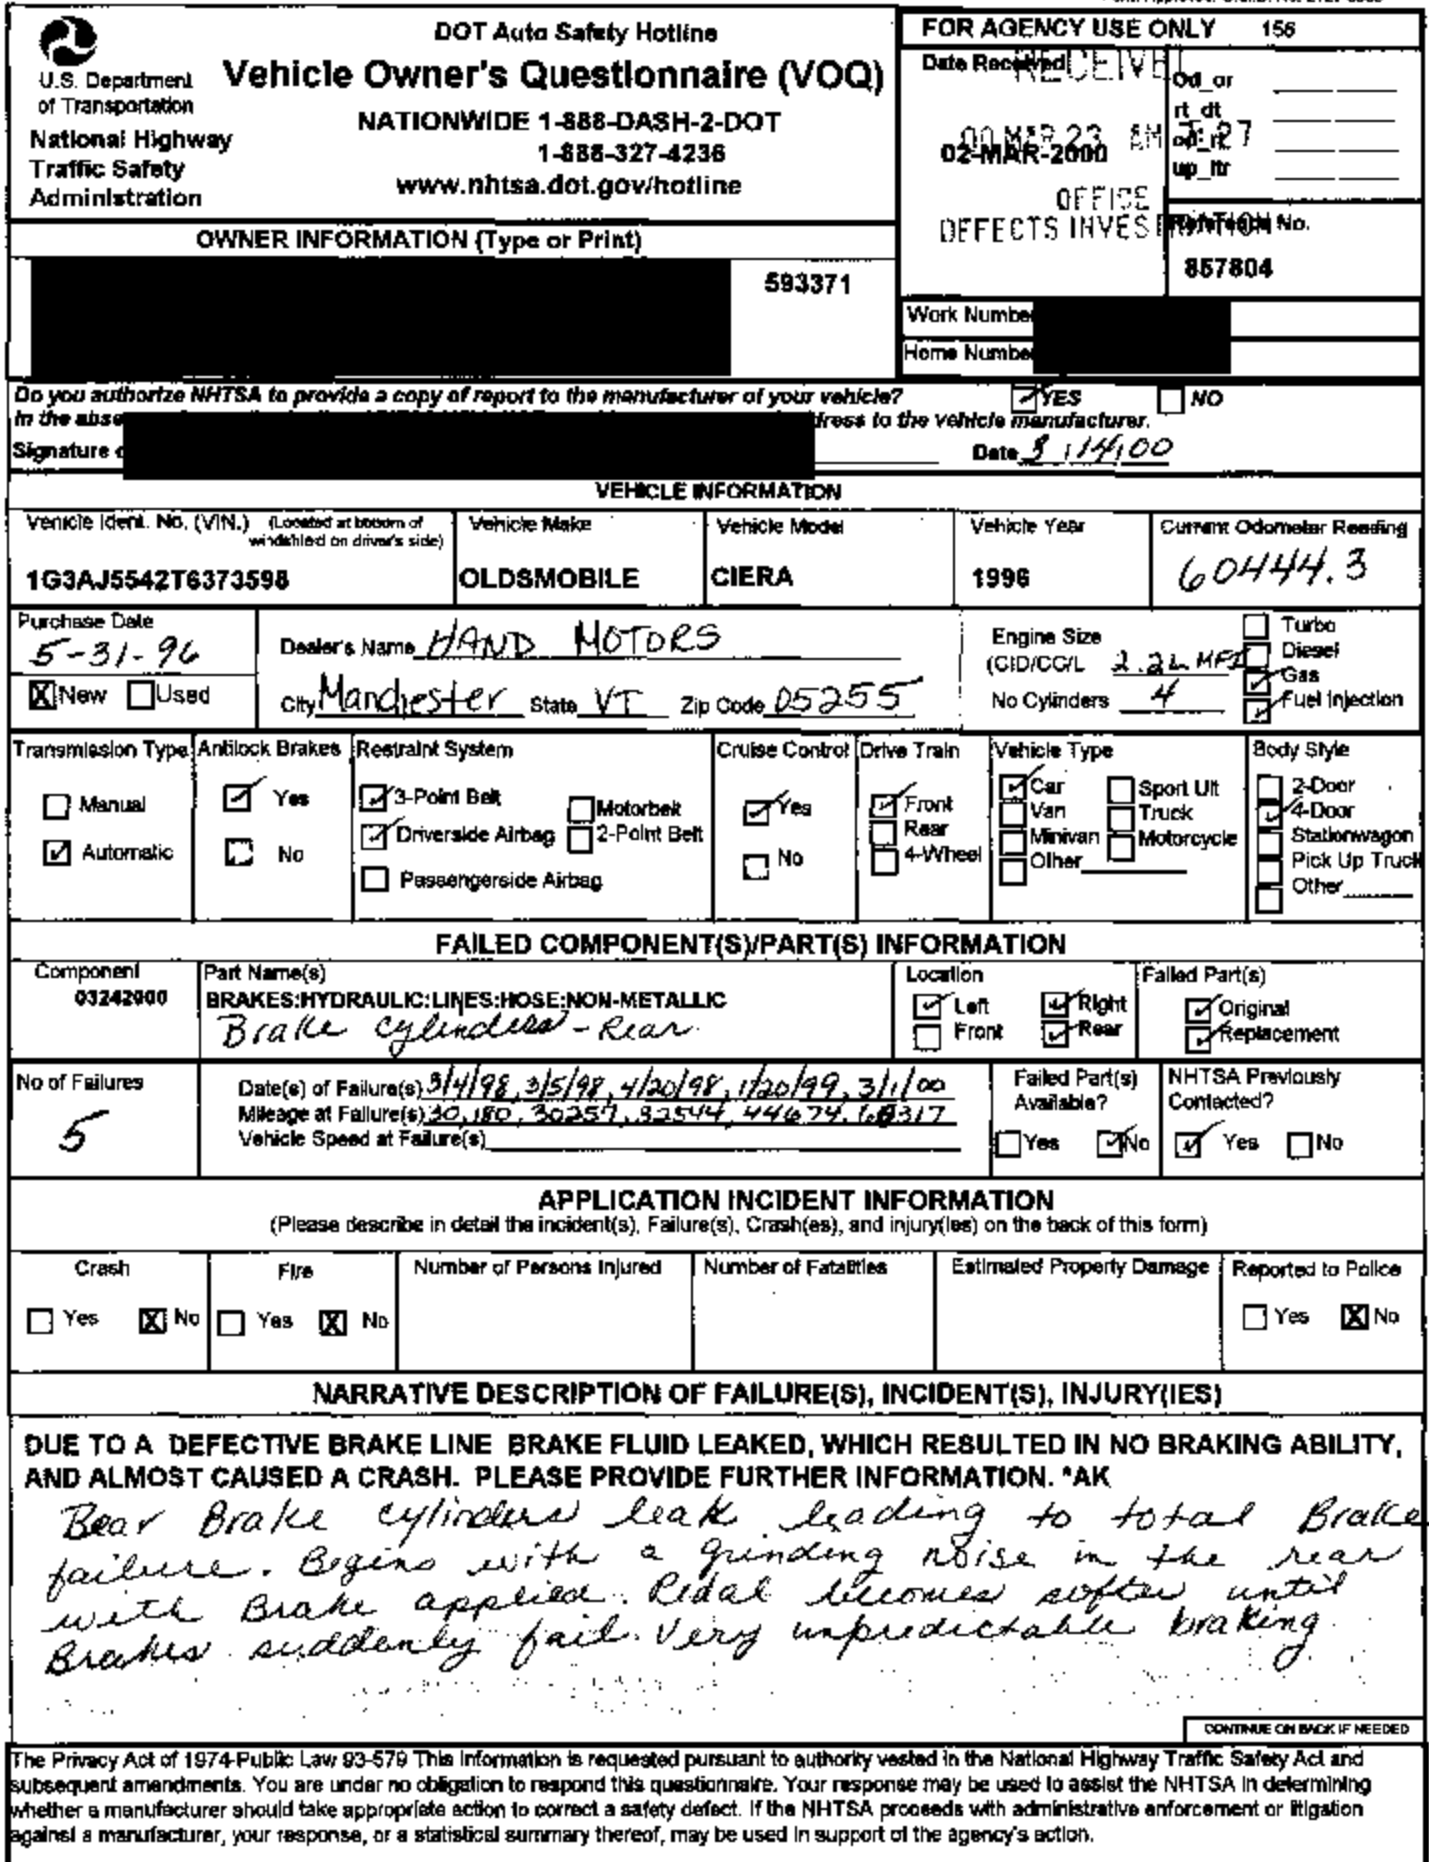 DOT Auto Safety Hotline
Vehicle Owner's Questionnaire (VOQ)
NATIONWIDE 1-888-DASH-2-DOT
1-888-327-4236
www.nhtsa.dot.gov/hotline
U.S. Department
of Transportation
National Highway
Traffic Safety
Administration
FOR AGENCY USE ONLY 156
Date Received
RECEIVED
00 MAR 23 AM
02-MAR-2000
OFFICE
DEFECTS INVESTIGATION
Od_or
rt_dt
od_rt
up_ltr
Reference No.
857804
OWNER INFORMATION (Type or Print)
593371
Work Number
Home Number
Do you authorize NHTSA to provide a copy of report to the manufacturer of your vehicle? YES NO
In the abse dress to the vehicle manufacturer.
Signature o Date 3/14/00
VEHICLE INFORMATION
Vehicle Ident. No. (VIN.) (Located at bottom of windshield on driver's side)
1G3AJ5542T6373598
Vehicle Make
OLDSMOBILE
Vehicle Model
CIERA
Vehicle Year
1996
Current Odometer Reading
60444.3
Purchase Date
5-31-96
New Used
Dealer's Name HAND MOTORS
City Manchester State VT Zip Code 05255
Engine Size
(CID/CC/L 2.2L MFI
No Cylinders 4
Turbo
Diesel
Gas
Fuel Injection
Transmission Type
Manual
Automatic
Antilock Brakes
Yes
No
Restraint System
3-Point Belt
Driverside Airbag
Passengerside Airbag
Motorbelt
2-Point Belt
Cruise Control
Yes
No
Drive Train
Front
Rear
4-Wheel
Vehicle Type
Car
Van
Minivan
Other
Sport Ult
Truck
Motorcycle
Body Style
2-Door
4-Door
Stationwagon
Pick Up Truck
Other
FAILED COMPONENT(S)/PART(S) INFORMATION
Component
03242000
Part Name(s)
BRAKES:HYDRAULIC:LINES:HOSE:NON-METALLIC
Brake cylinders - Rear
Location
Left Right
Front Rear
Failed Part(s)
Original
Replacement
No of Failures
5
Date(s) of Failure(s) 3/4/98, 3/5/98, 4/20/98, 1/20/99, 3/1/00
Mileage at Failure(s) 30,180, 30257, 32544, 44674,
Vehicle Speed at Failure(s)
Failed Part(s)
Available?
Yes No
NHTSA Previously
Contacted?
Yes No
APPLICATION INCIDENT INFORMATION
(Please describe in detail the incident(s), Failure(s), Crash(es), and injury(ies) on the back of this form)
Crash
Yes No
Fire
Yes No
Number of Persons Injured
Number of Fatalities
Estimated Property Damage
Reported to Police
Yes No
NARRATIVE DESCRIPTION OF FAILURE(S), INCIDENT(S), INJURY(IES)
DUE TO A DEFECTIVE BRAKE LINE BRAKE FLUID LEAKED, WHICH RESULTED IN NO BRAKING ABILITY,
AND ALMOST CAUSED A CRASH. PLEASE PROVIDE FURTHER INFORMATION. *AK
Rear Brake cylinders leak leading to total Brake
failure. Begins with a grinding noise in the rear
with Brake applied. Pedal becomes softer until
Brakes suddenly fail. Very unpredictable braking.
CONTINUE ON BACK IF NEEDED
The Privacy Act of 1974-Public Law 93-579 This information is requested pursuant to authority vested in the National Highway Traffic Safety Act and
subsequent amendments. You are under no obligation to respond this questionnaire. Your response may be used to assist the NHTSA in determining
whether a manufacturer should take appropriate action to correct a safety defect. If the NHTSA proceeds with administrative enforcement or litigation
against a manufacturer, your response, or a statistical summary thereof, may be used in support of the agency's action.